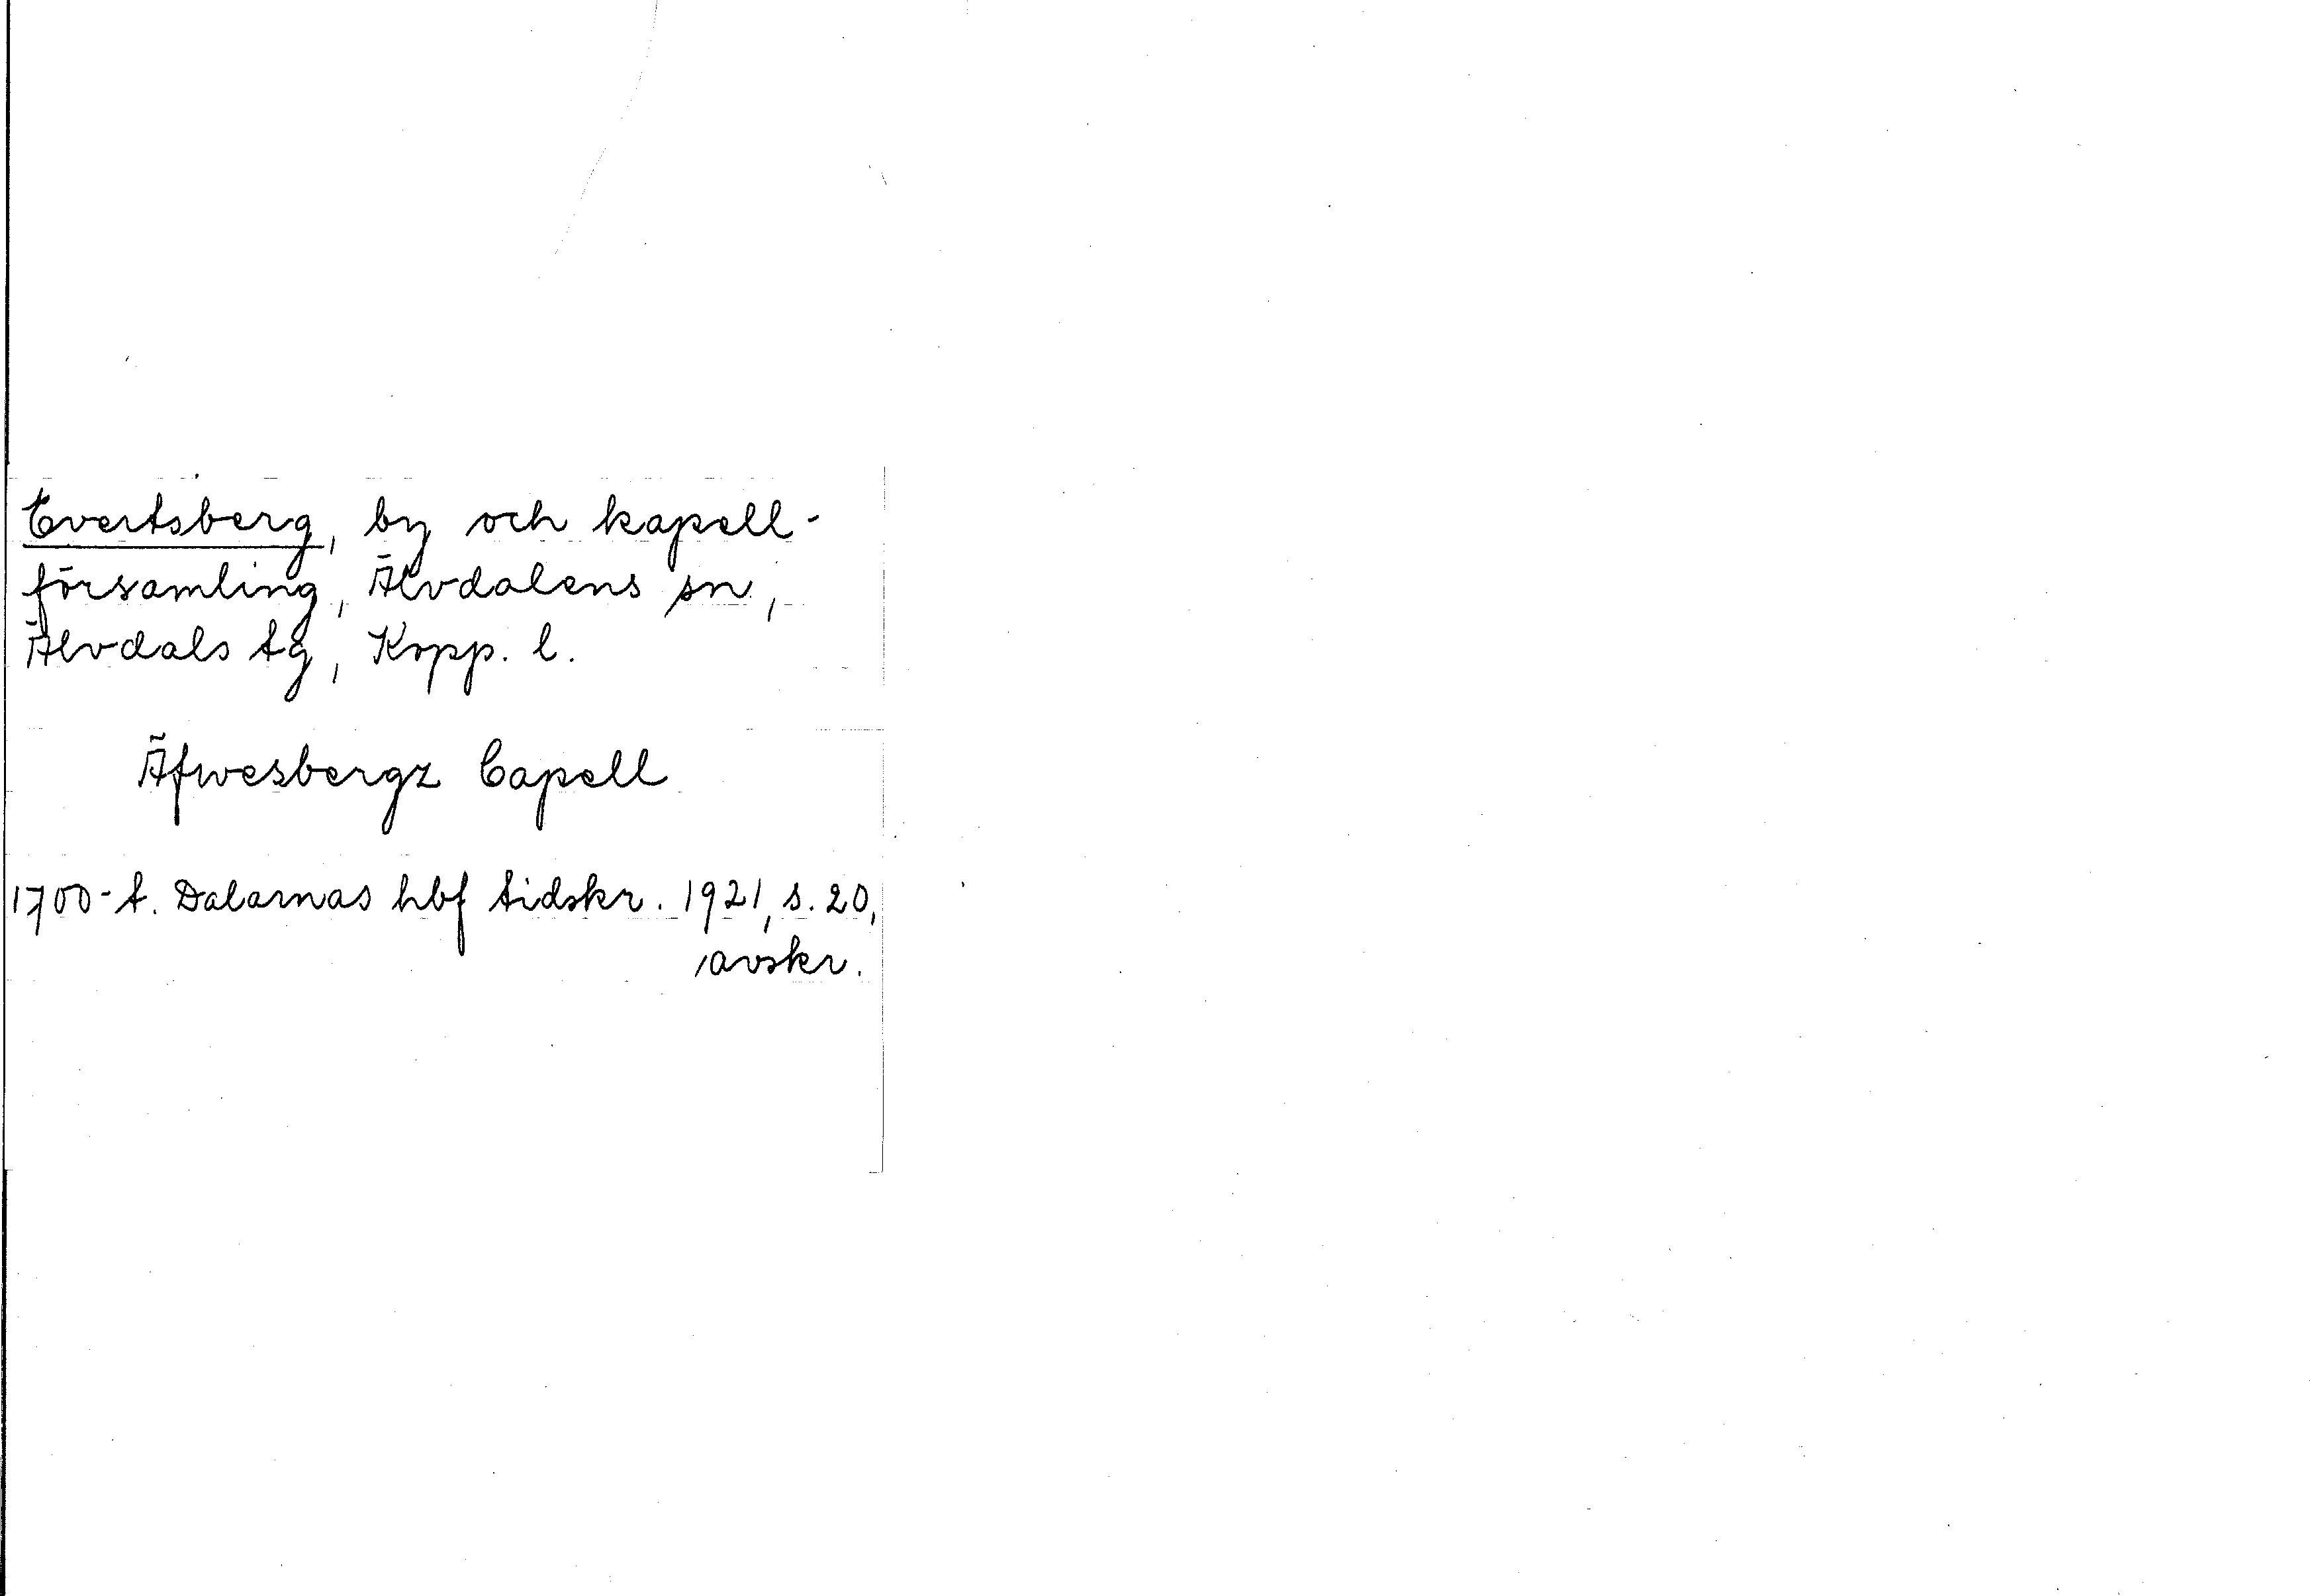 Evertsberg, by och kapell-
församling, Älvdalens sn,
Älvdals tg, Kopp. l.
Äfwesbergz Capell
1700-t. Dalarnas hbf tidskr. 1921, s. 20,
avskr.